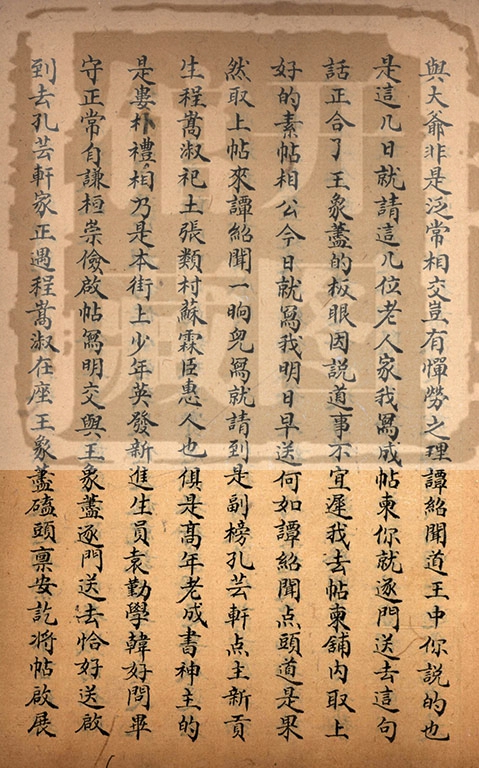 與大爺非是泛常相交豈有憚勞之理譚紹聞道王中你說的也
是這几日就請這几位老人家我寫成帖柬你就逐門送去這句
話正合了王象藎的板眼因説道事不宜遲我去帖柬舖內取上
好的素帖相公今日就寫我明日早送何如譚紹聞点頭道是果
然取上帖來譚紹聞一晌兒寫就請到是副榜孔芸軒点主新貢
生程嵩淑祀土張類村蘇霖臣惠人也俱是高年老成書神主的
是婁朴禮相乃是本街上少年英發新進生員袁勤學韓好問畢
守正常自謙桓崇儉啟帖寫明交與王象藎逐門送去恰好送啟
到去孔芸軒家正遇程嵩淑在座王象藎磕頭禀安訖將帖啟展